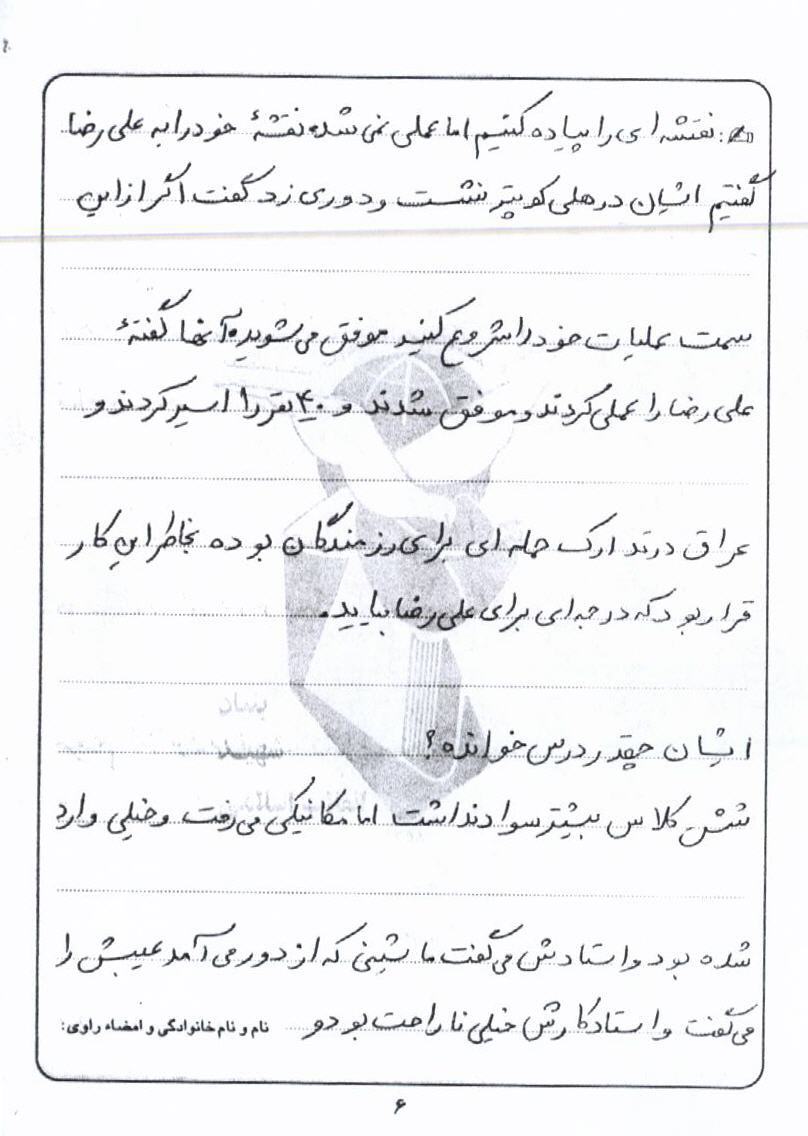 نقشه ای را پیاده کنیم اما عملی نمی شده نقشهٔ خود را به علی رضا
گفتیم ایشان در هلی کوپتر نشست و دوری زد گفت اگر از این
سمت عملیات خود را شروع کنید موفق می شوید آنها گفتهٔ
علی رضا را عملی کردند و موفق شدند و ۴۰ نفر را اسیر کردند و
عراق در تدارک حمله ای برای رزمندگان بوده بخاطر این کار
قرار بود که درجه ای برای علی رضا بیاید.
ایشان چقدر درس خوانده؟
شش کلاس بیشتر سواد نداشت اما مکانیکی می رفت و خیلی وارد
شده بود و استادش می گفت ماشینی که از دور می آمد عیبش را
می گفت و استاد کارش خیلی ناراحت بود و
نام و نام خانوادگی و امضاء راوی:
۶